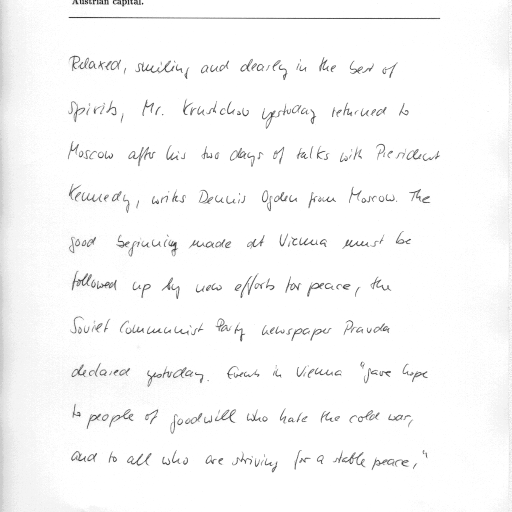 Austrian capital.
Relaxed, smiling and clearly in the best of
spirits, Mr. Krustchov yesterday returned to
Moscow after his two days of talks with President
Kennedy, writes Dennis Ogden from Moscow. The
good beginning made at Vienna must be
followed up by new efforts for peace, the
Soviet Communist Party newspaper Pravda
declared yesterday. Events in Vienna "gave hope
to people of goodwill who hate the cold war,
and to all who are striving for a stable peace,"